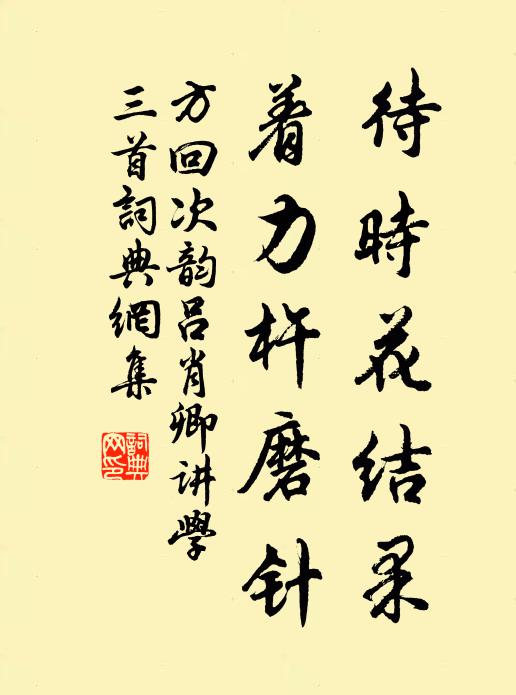 待時花结果
着力杵磨针
方回次韵吕肖卿讲學
三首詞典網集
詞典
网印